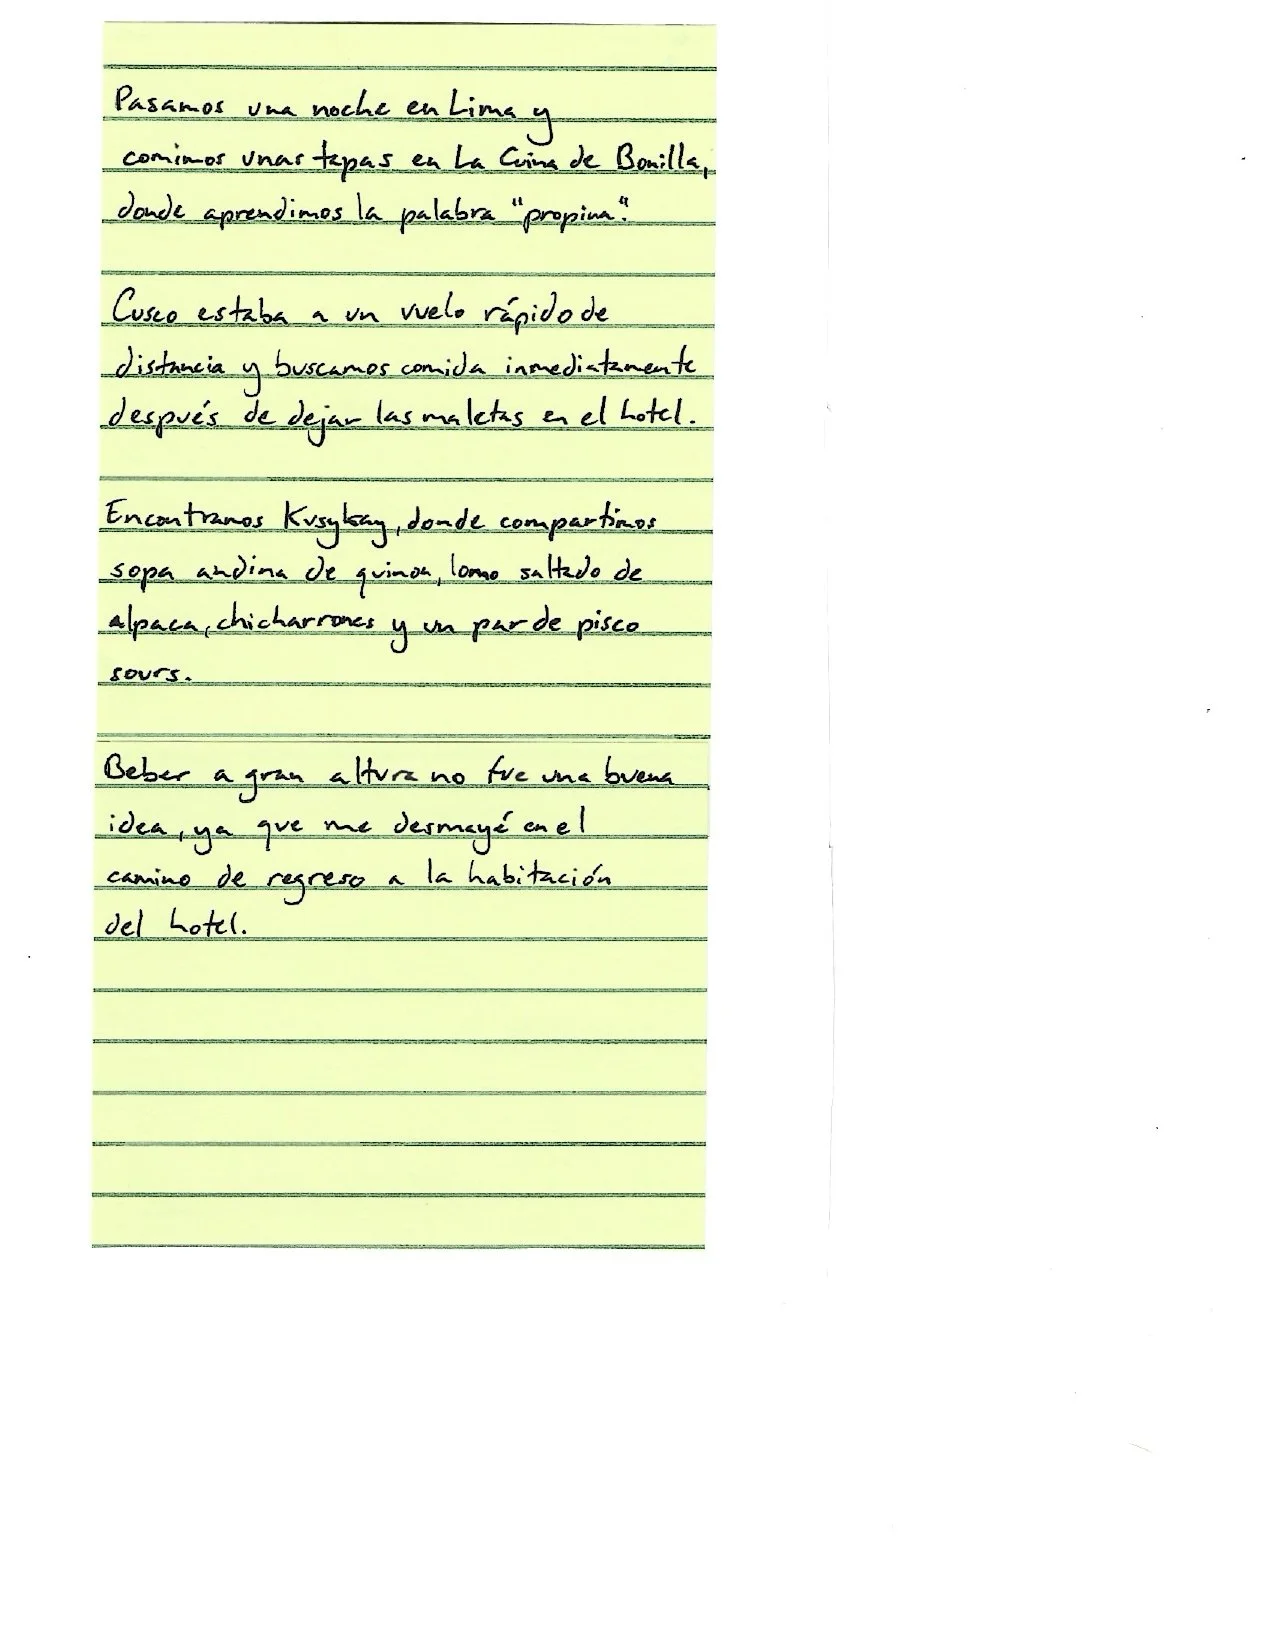 Pasamos una noche en Lima y
comimos unas tapas en La Cuina de Bonilla,
donde aprendimos la palabra "propina".
Cusco estaba a un vuelo rápido de
distancia y buscamos comida inmediatamente
después de dejar las maletas en el hotel.
Encontramos Kusykay, donde compartimos
sopa andina de quinoa, lomo saltado de
alpaca, chicharrones y un par de pisco
sours.
Beber a gran altura no fue una buena
idea, ya que me desmayé en el
camino de regreso a la habitación
del hotel.